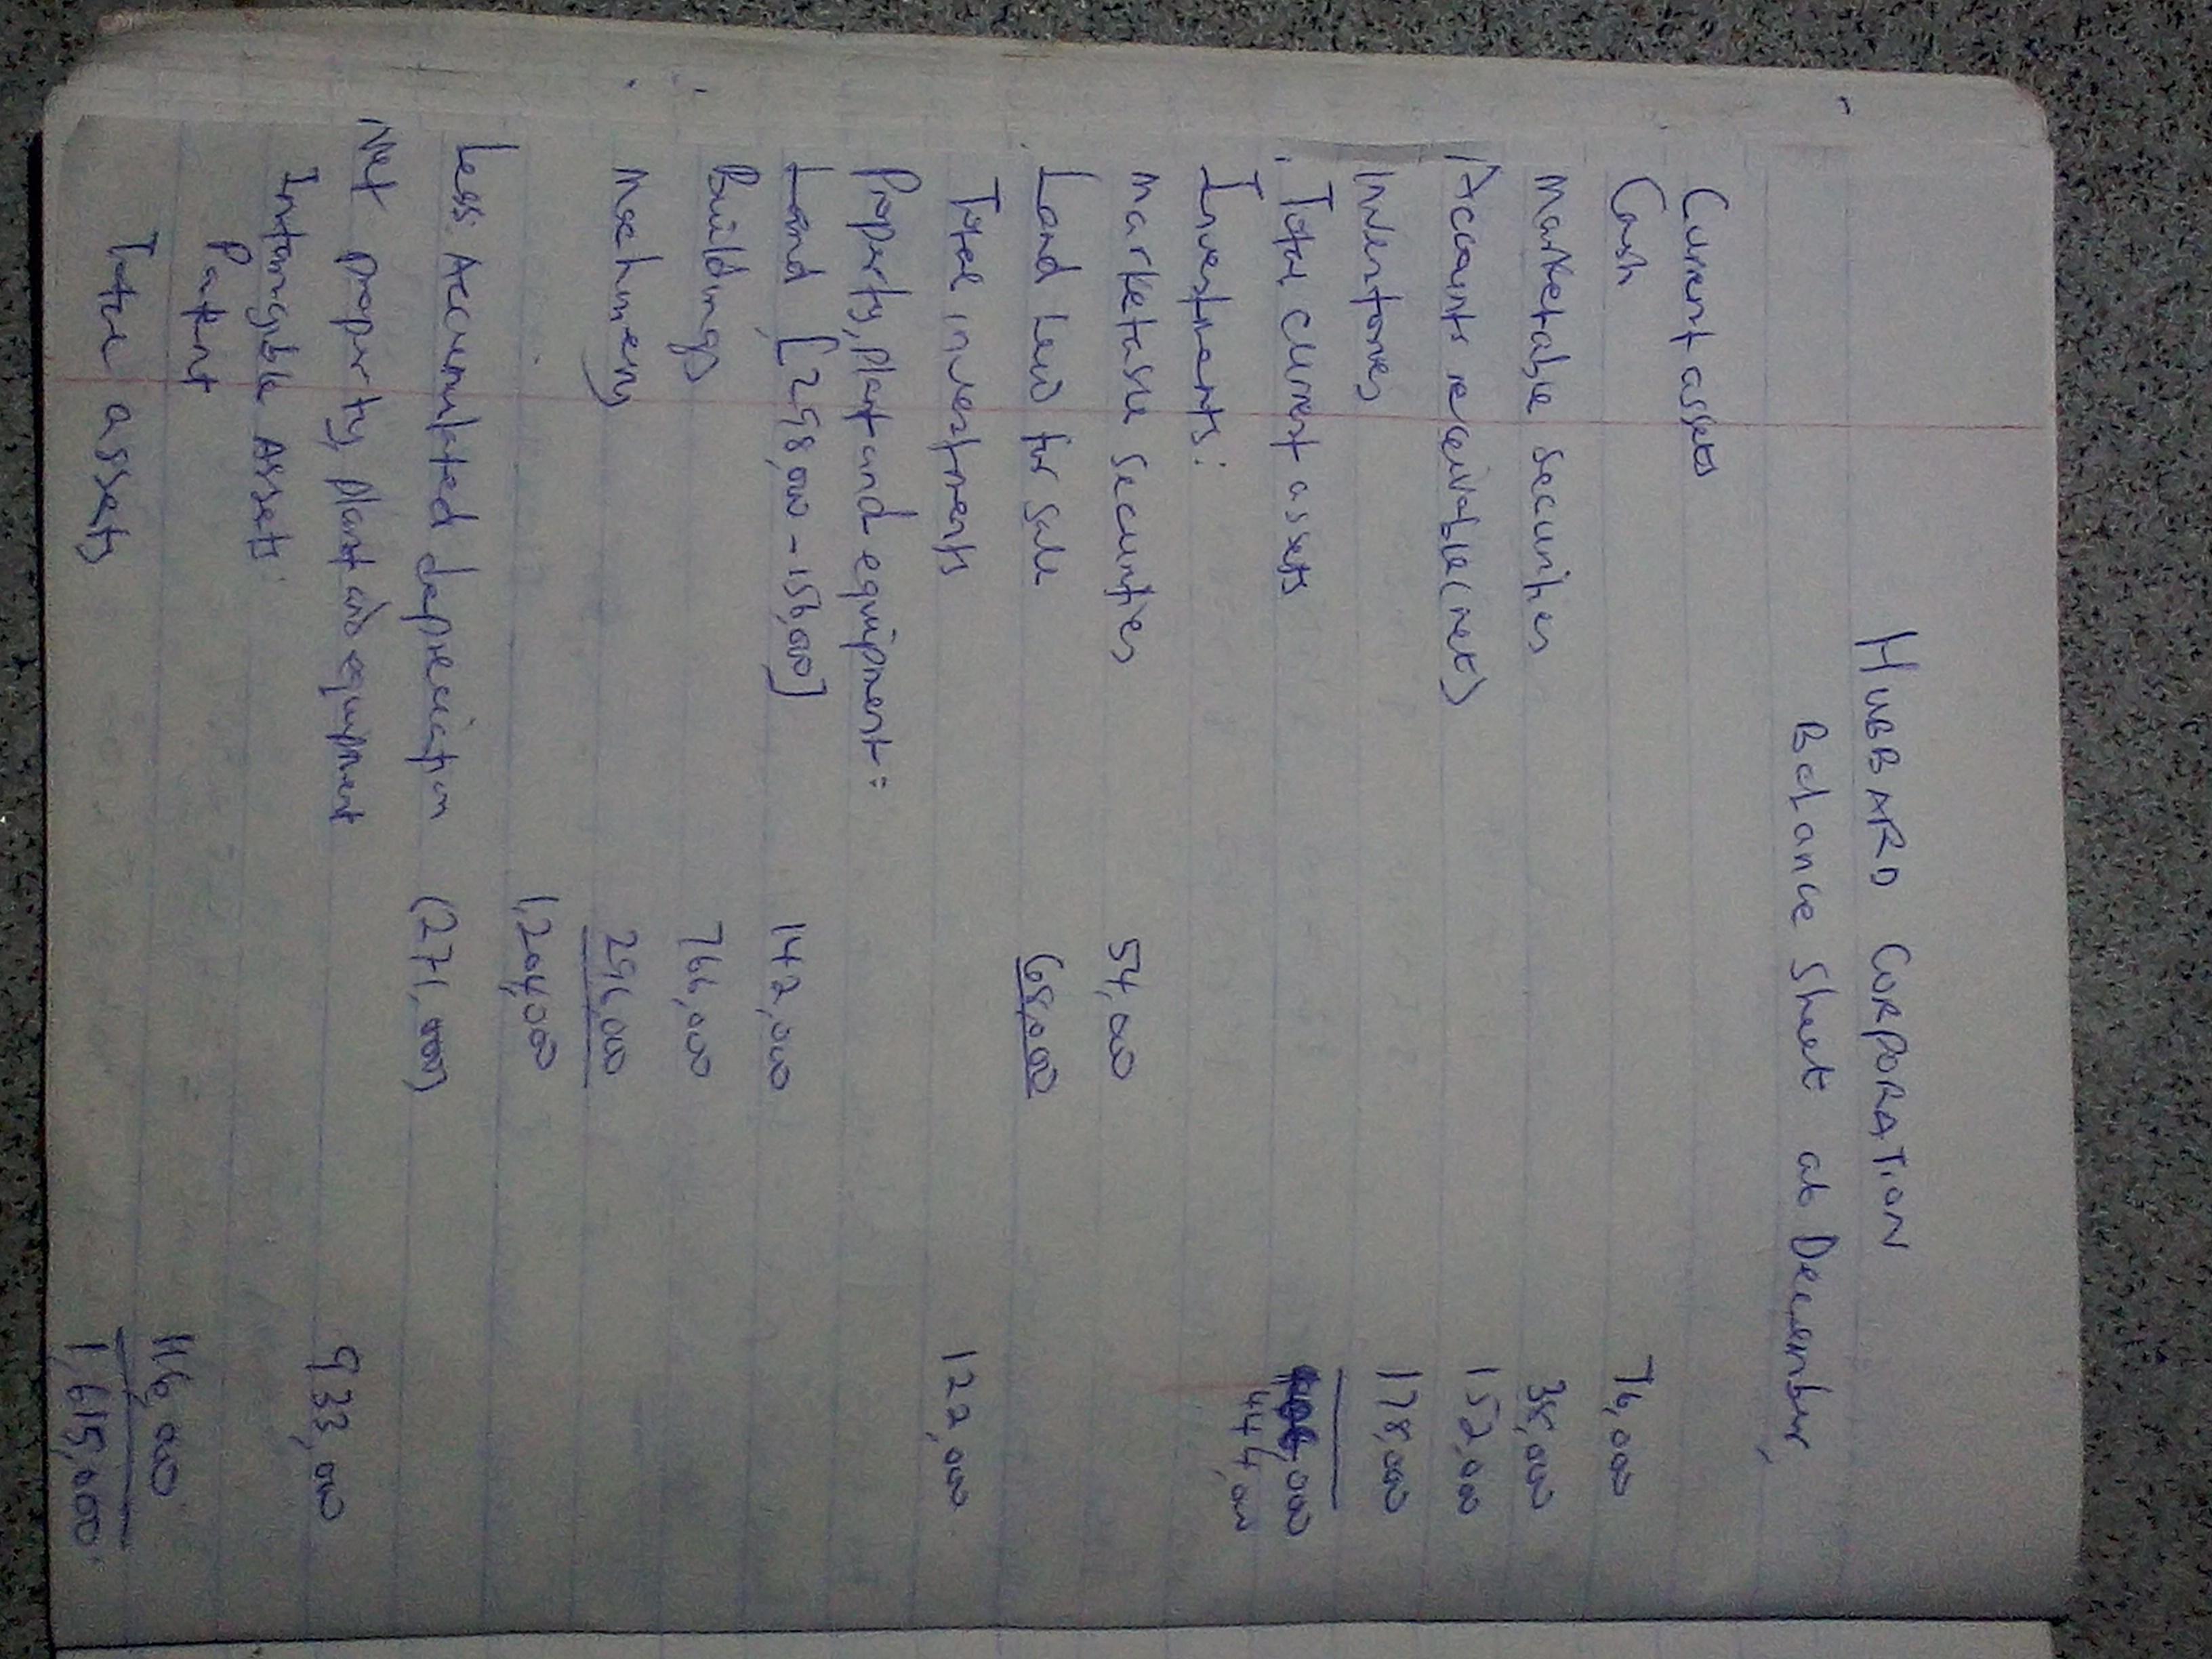 HUBBARD CORPORATION
Balance Sheet at December,
Current assets
Cash 76,000
Marketable securities 38,000
Accounts receivable (net) 152,000
Inventories 178,000
Total current assets ,000
444,000
Investments:
Marketable securities 54,000
Land held for sale 68,000
Total investments 122,000
Property, plant and equipment:
Land [298,000 - 156,000] 142,000
Buildings 766,000
Machinery 296,000
1,204,000
Less: Accumulated depreciation (271,000)
Net property, plant and equipment 933,000
Intangible Assets:
Patent 116,000
Total assets 1,615,000